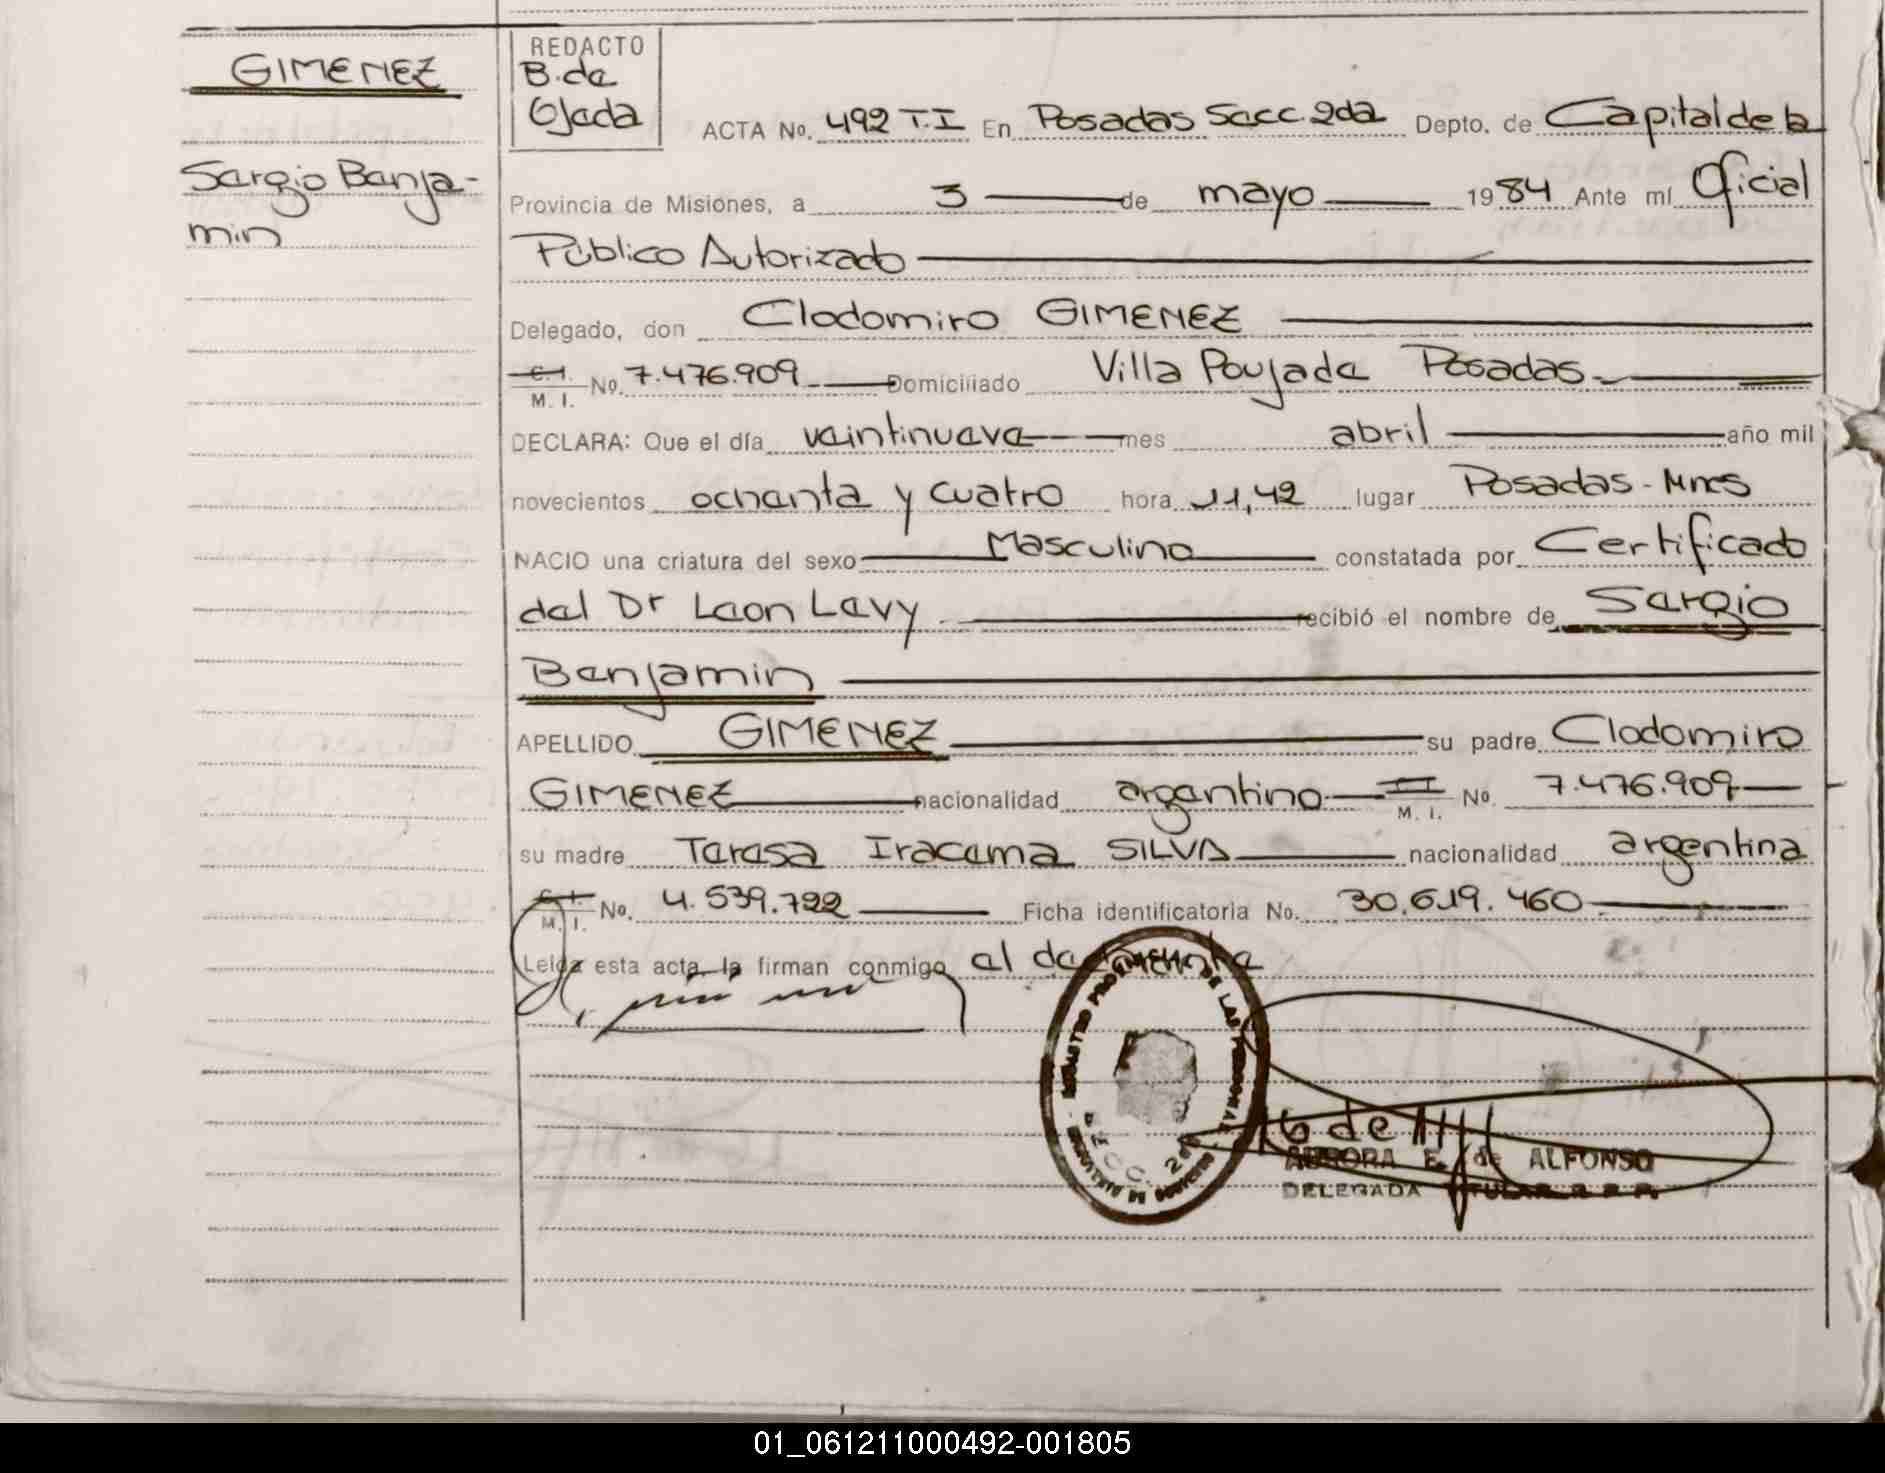 GIMENEZ
Sergio Benja-
min
REDACTO
B. de
Ojeda
ACTA No. 492 T.I En Posadas Secc. 2da Depto. de Capital de la
Provincia de Misiones, a 3 de mayo 1984 Ante mI Oficial
Público Autorizado
Delegado, don Clodomiro GIMENEZ
C. I.
M. I. No. 7.476.909 Domiciliado Villa Poujade Posadas
DECLARA: Que el día veintinueve mes abril año mil
novecientos ochenta y cuatro hora 11,42 lugar Posadas - Mnes
NACIO una criatura del sexo Masculino constatada por Certificado
del Dr Leon Levy recibió el nombre de Sergio
Benjamin
APELLIDO GIMENEZ su padre Clodomiro
GIMENEZ nacionalidad argentino M. I. No. 7.476.909
su madre Teresa Iracema SILVA nacionalidad argentina
C. I.
M. I. No. 4.539.722 Ficha identificatoria No. 30.619.460
Leida esta acta, la firman conmigo el declarante
REGISTRO PROVINCIAL DE LAS PERSONAS
SECC. 2da
AURORA E. de ALFONSO
DELEGADA TITULAR R. P. P.
01_061211000492-001805